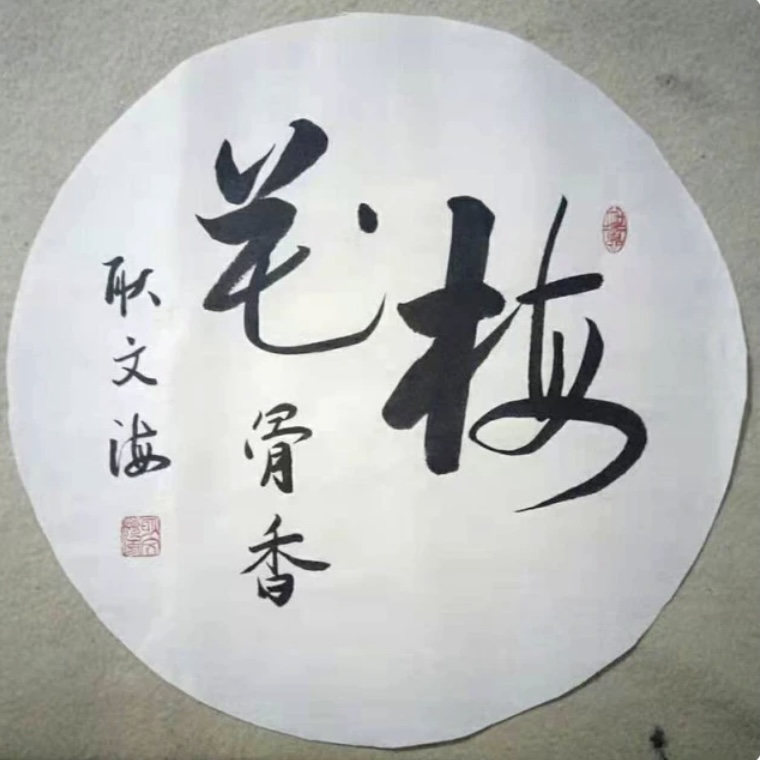 梅
花骨香
耿文海